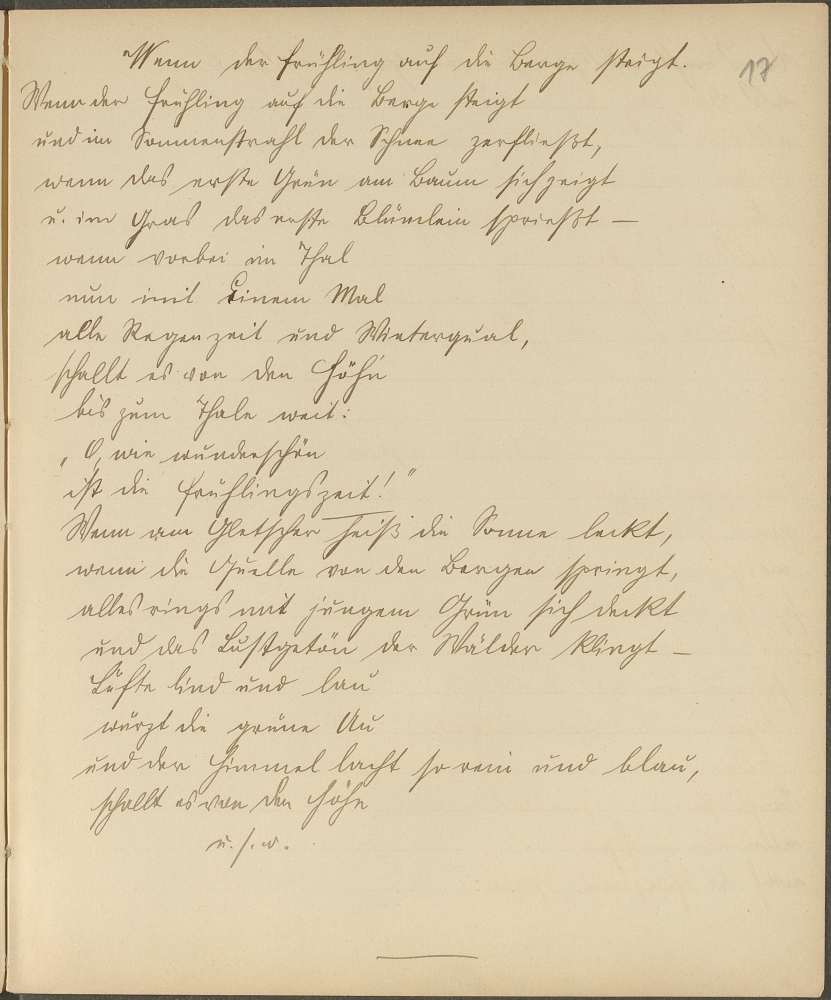 Wenn der Frühling auf die Berge steigt.
17
Wenn der Frühling auf die Berge steigt
und im Sonnenstrahl der Schnee zerfließt,
wenn das erste Grün am Baum sich zeigt
u. im Gras das erste Blümlein sprießt —
wenn vorbei im Thal
nun mit Einem Mal
alle Regenzeit und Winterqual,
schallt es von den Höh'n
bis zum Thale weit:
„O, wie wunderschön
ist die Frühlingszeit!"
Wenn am Gletscher heiß die Sonne leckt,
wenn die Quelle von den Bergen springt,
alles rings mit jungem Grün sich deckt
und das Lustgetön der Wälder klingt —
Lüfte lind und lau
würzt die grüne Au
und der Himmel lacht so rein und blau,
schallt es von den Höhn
u. s. w.